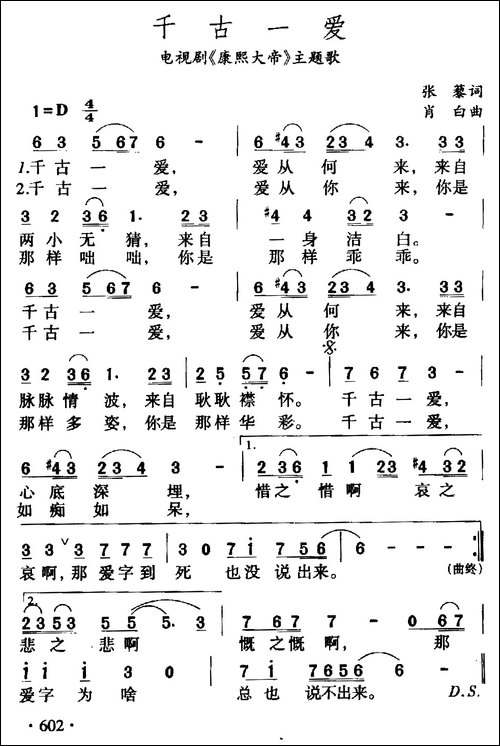 千古一爱
电视剧《康熙大帝》主题歌
张藜词
1=D 4/4
肖白曲
6 3 5 6 7 6 - | 6 #4 3 2 3 4 3· 3 3 |
1.千古一爱， 爱从何来，来自
2.千古一爱， 爱从你来，你是
3 2 3 6 1· 2 3 | #4 4 3 2 3 - |
两小无猜，来自一身洁白。
那样咄咄，你是那样乖乖。
6 3 5 6 7 6 - | 6 #4 3 2 3 4 3· 3 3 |
千古一爱， 爱从何来，来自
千古一爱， 爱从你来，你是
3 2 3 6 1· 2 3 | 2 5 5 7 6 - | 7 6 7 3 - |
脉脉情波，来自耿耿襟怀。千古一爱，
那样多姿，你是那样华彩。千古一爱，
1.
6 #4 3 2 3 4 3 - | 2 3 6 1 1 2 3 | #4 4 3 2 |
心底深埋， 惜之惜啊哀之
如痴如呆，
3 3 ∨ 3 7 7 7 | 3 0 7 i 7 5 6 | 6 - - - :||
哀啊，那爱字到死也没说出来。 (曲终)
2.
2 3 5 3 5 5 5· 3 | 7 6 7 7 - 0 6 7 |
悲之悲啊 慨之慨啊， 那
i i i 3 0 | 7 i 7 6 5 6 6 - ||
爱字为啥 总也说不出来。 D.S.
·602·